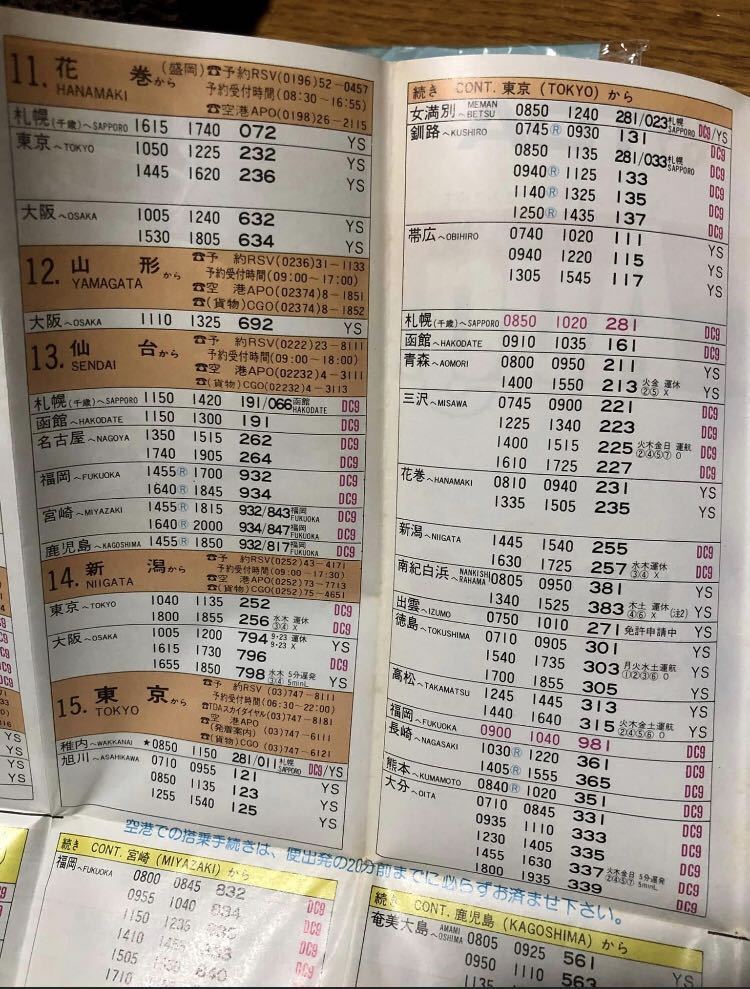 11. 花巻から (盛岡) ☎予約RSV(0196)52-0457
HANAMAKI 予約受付時間(08:30~16:55)
☎空港APO(0198)26-2115
札幌(千歳)~SAPPORO 1615 1740 072 YS
東京~TOKYO 1050 1225 232 YS
1445 1620 236 YS
大阪~OSAKA 1005 1240 632 YS
1530 1805 634 YS
12. 山形から ☎予 約RSV(0236)31-1133
YAMAGATA 予約受付時間(09:00~17:00)
☎空 港APO(02374)8-1851
☎(貨物)CGO(02374)8-1852
大阪~OSAKA 1110 1325 692 YS
13. 仙台から ☎予 約RSV(0222)23-8111
SENDAI 予約受付時間(09:00~18:00)
☎空 港APO(02232)4-3111
☎(貨物)CGO(02232)4-3113
札幌(千歳)~SAPPORO 1150 1420 191/066函館HAKODATE DC9
函館~HAKODATE 1150 1300 191 DC9
名古屋~NAGOYA 1350 1515 262 DC9
1740 1905 264 DC9
福岡~FUKUOKA 1455Ⓡ 1700 932 DC9
1640Ⓡ 1845 934 DC9
宮崎~MIYAZAKI 1455Ⓡ 1815 932/843福岡FUKUOKA DC9
1640Ⓡ 2000 934/847福岡FUKUOKA DC9
鹿児島~KAGOSHIMA 1455Ⓡ 1850 932/817福岡FUKUOKA DC9
14. 新潟から ☎予 約RSV(0252)43-4171
NIIGATA 予約受付時間(09:00~17:30)
☎空 港APO(0252)73-7713
☎(貨物)CGO(0252)75-4651
東京~TOKYO 1040 1135 252 DC9
1800 1855 256 水木 運休 ③④ X DC9
大阪~OSAKA 1005 1200 794 9·23 運休 9·23 X YS
1615 1730 796 DC9
1655 1850 798 水木 5分遅発 ③④ 5minL YS
15. 東京から ☎予 約RSV(03)747-8111
TOKYO 予約受付時間(06:30~22:00)
☎TDAスカイダイヤル(03)747-8181
☎空 港APO (発着案内) (03)747-6111
☎(貨物)CGO (03)747-6121
稚内~WAKKANAI ★0850 1150 281/011札幌SAPPORO DC9/YS
旭川~ASAHIKAWA 0710 0955 121 YS
0850 1135 123 YS
1255 1540 125 YS
空港での搭乗手続きは、便出発の20分前までに必らずお済ませ下さい。
続き CONT. 宮崎 (MIYAZAKI) から
福岡~FUKUOKA 0800 0845 832 DC9
0955 1040 834 DC9
1150 1235 DC9
1410 1455 DC9
1505 840 DC9
1710
続き CONT. 東京 (TOKYO) から
女満別~MEMANBETSU 0850 1240 281/023札幌SAPPORO DC9/YS
釧路~KUSHIRO 0745Ⓡ 0930 131 DC9
0850 1135 281/033札幌SAPPORO DC9
0940Ⓡ 1125 133 DC9
1140Ⓡ 1325 135 DC9
1250Ⓡ 1435 137 DC9
帯広~OBIHIRO 0740 1020 111 YS
0940 1220 115 YS
1305 1545 117 YS
札幌(千歳)~SAPPORO 0850 1020 281 DC9
函館~HAKODATE 0910 1035 161 DC9
青森~AOMORI 0800 0950 211 YS
1400 1550 213 火金 運休 ②⑤ X YS
三沢~MISAWA 0745 0900 221 DC9
1225 1340 223 DC9
1400 1515 225 火木金日 運航 ②④⑤⑦ O DC9
1610 1725 227 DC9
花巻~HANAMAKI 0810 0940 231 YS
1335 1505 235 YS
新潟~NIIGATA 1445 1540 255 DC9
1630 1725 257 水木運休 ③④ X DC9
南紀白浜~NANKISHIRAHAMA 0805 0950 381 YS
1340 1525 383 木土 運休 ④⑥ X (注2) YS
出雲~IZUMO 0750 1010 271 免許申請中 YS
徳島~TOKUSHIMA 0710 0905 301 YS
1540 1735 303 月火水土運航 ①②③⑥ O YS
1700 1855 305 YS
高松~TAKAMATSU 1245 1445 313 YS
1440 1640 315 火木金土運航 ②④⑤⑥ O YS
福岡~FUKUOKA 0900 1040 981 DC9
長崎~NAGASAKI 1030Ⓡ 1220 361 DC9
1405Ⓡ 1555 365 DC9
熊本~KUMAMOTO 0840Ⓡ 1020 351 DC9
大分~OITA 0710 0845 331 DC9
0935 1110 333 DC9
1230 1405 335 DC9
1455 1630 337 火木金日 5分遅発 ②④⑤⑦ 5minL DC9
1800 1935 339 DC9
続き CONT. 鹿児島 (KAGOSHIMA) から
奄美大島~AMAMI OSHIMA 0805 0925 561 YS
0950 1110 563 YS